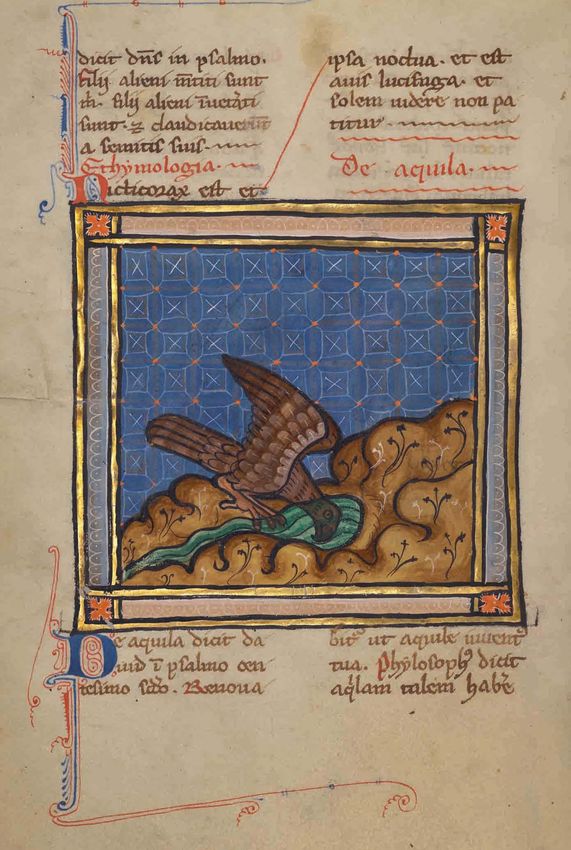 dicit dñs in psalmo.
filij alieni m̄titi sunt
m̄. filij alieni īuetāti
sunt. ⁊ claudicauerūt
a semitis suis.
Ethymologia.
Nicticorax est et
ipsa noctua. et est
auis lucifuga. et
solem uidere non pa
titur
De aquila.
De aquila dicit da
uid ī psalmo cen
tesimo scďo. Renoua
bit᷑ ut aquile iuuent᷑
tua. Phylosophꝰ dicit
aq̄lam talem hab̄e